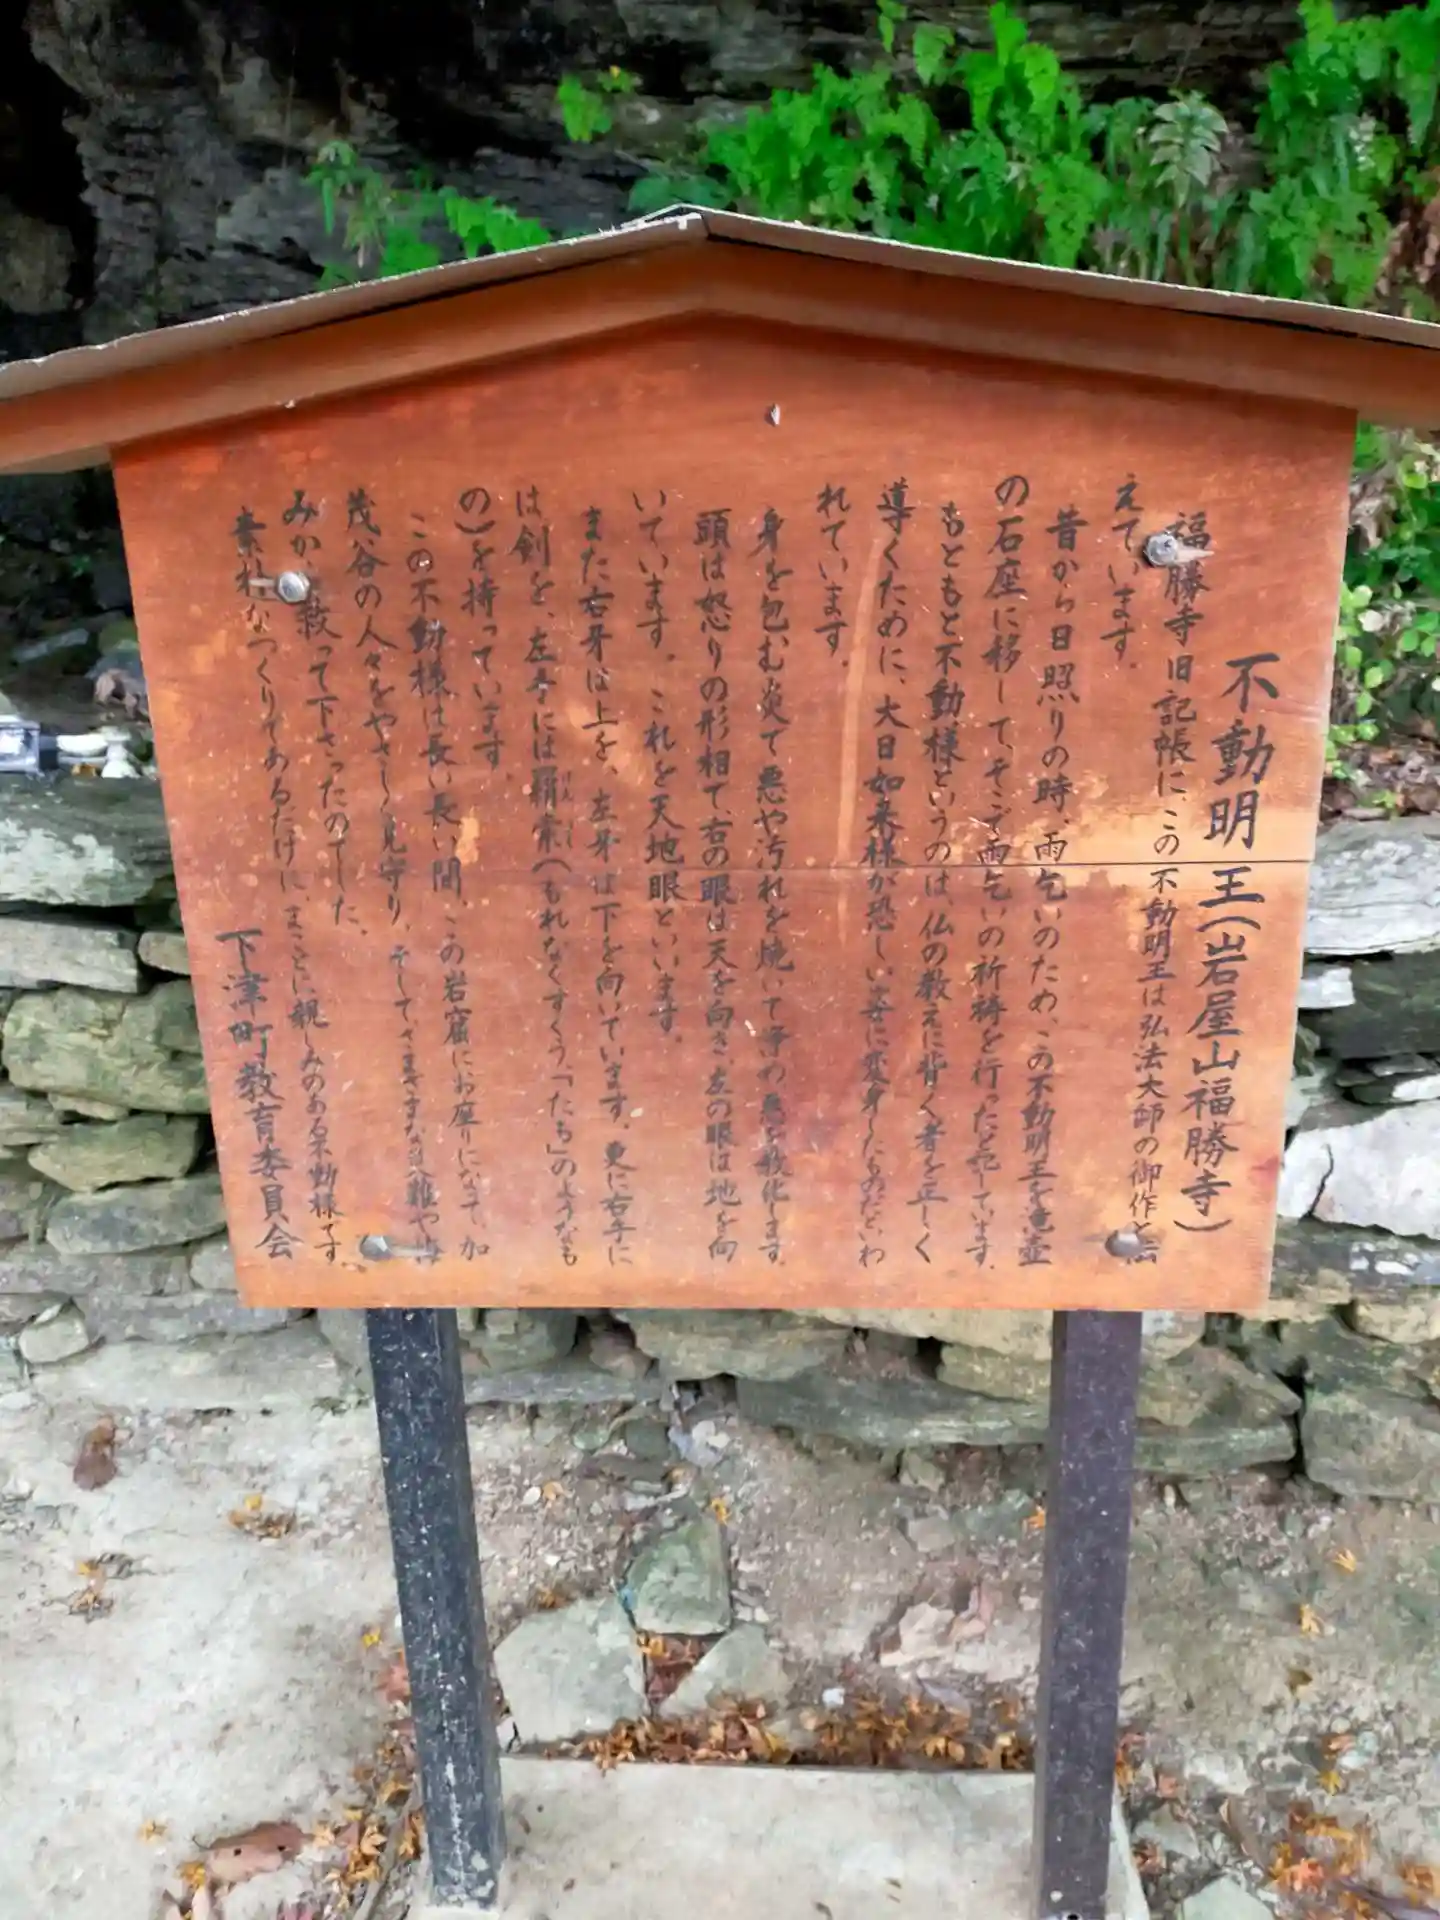 不動明王(岩屋山福勝寺)
福勝寺旧記帳に、この不動明王は弘法大師の御作と伝
えています。
昔から日照りの時、雨乞いのため、この不動明王を滝壺
の石座に移して、そこで雨乞いの祈祷を行ったと記しています。
もともと不動様というのは、仏の教えに背く者を正しく
導くために、大日如来様が恐しい姿に変身したものだといわ
れています。
身を包む炎で悪や汚れを焼いて浄め悪を教化します。
頭は怒りの形相で、右の眼は天を向き、左の眼は地を向
いています。これを天地眼といいます。
また右牙は上を、左牙は下を向いています。更に右手に
は剣を、左手には羂索(もれなくすくう、「たも」のようなも
けんさく
の)を持っています。
この不動様は長い長い間、この岩窟にお座りになって、加
茂谷の人々をやさしく見守り、そしてさまざまな災難や悩
みか 救って下さったのでした。
素朴なつくりであるだけに、まことに親しみのある不動様です。
下津町教育委員会